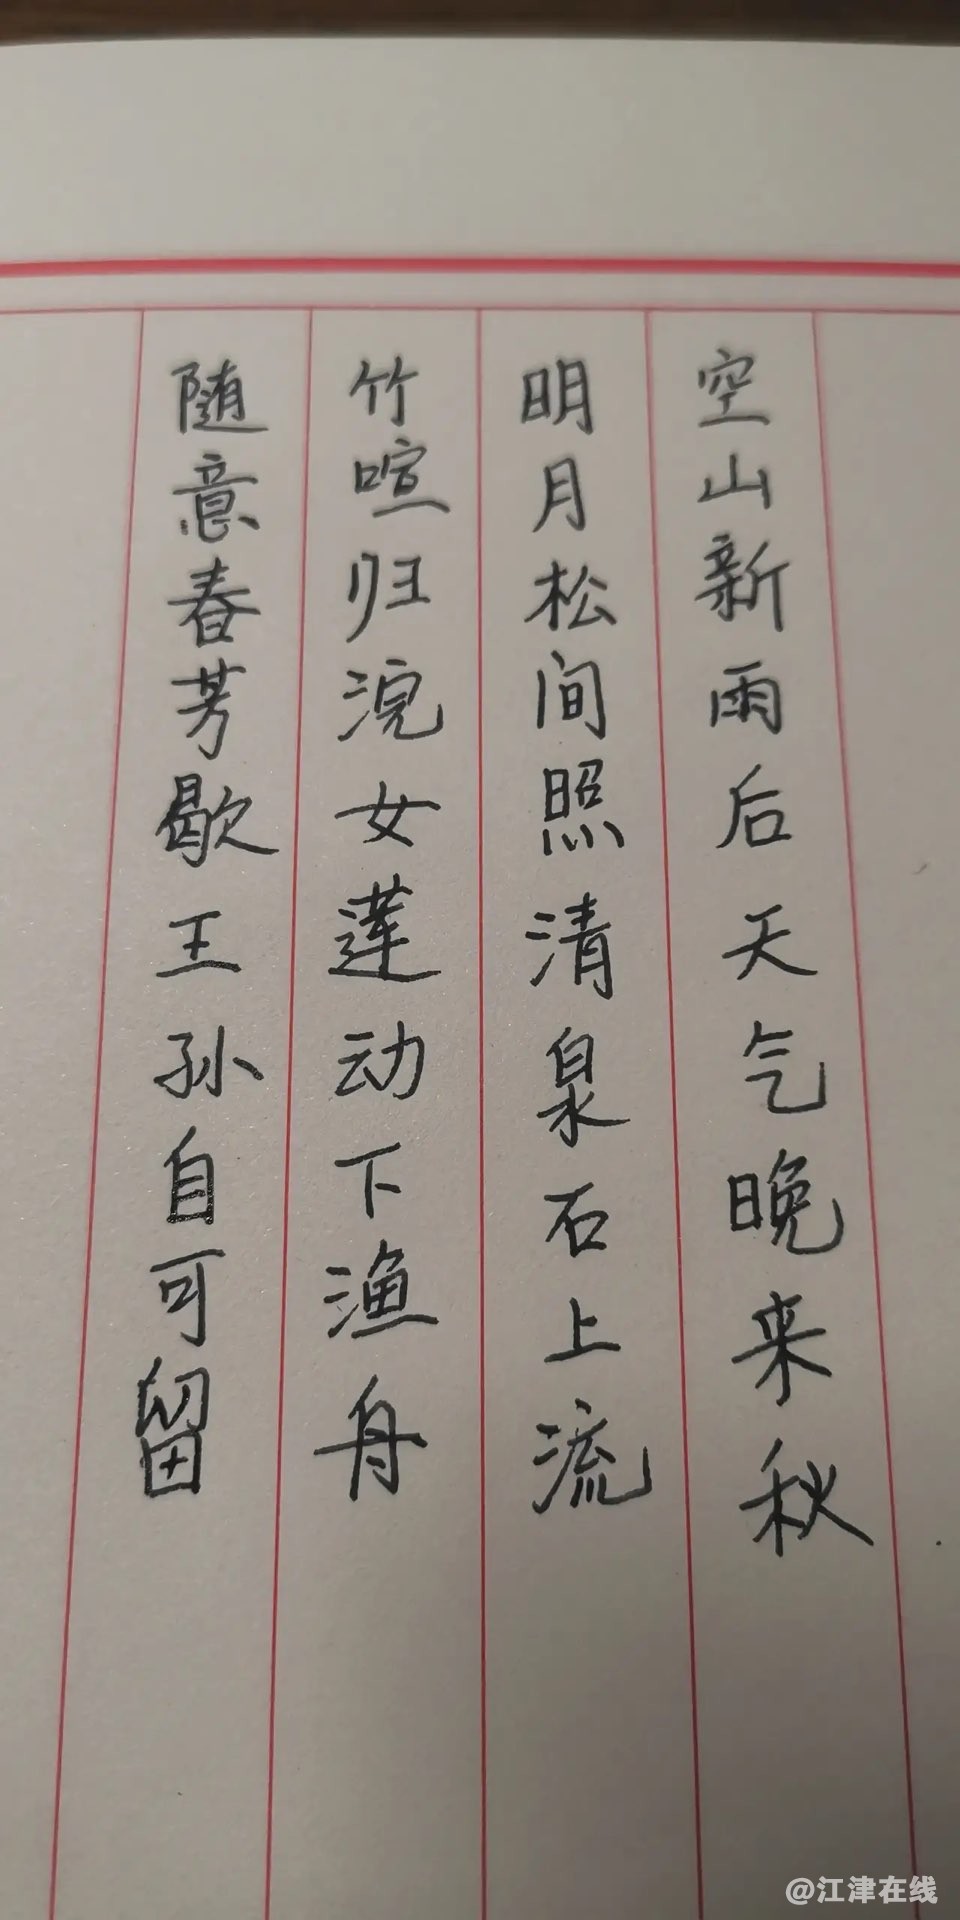 空山新雨后天气晚来秋
明月松间照清泉石上流
竹喧归浣女莲动下渔舟
随意春芳歇王孙自可留
@江津在线